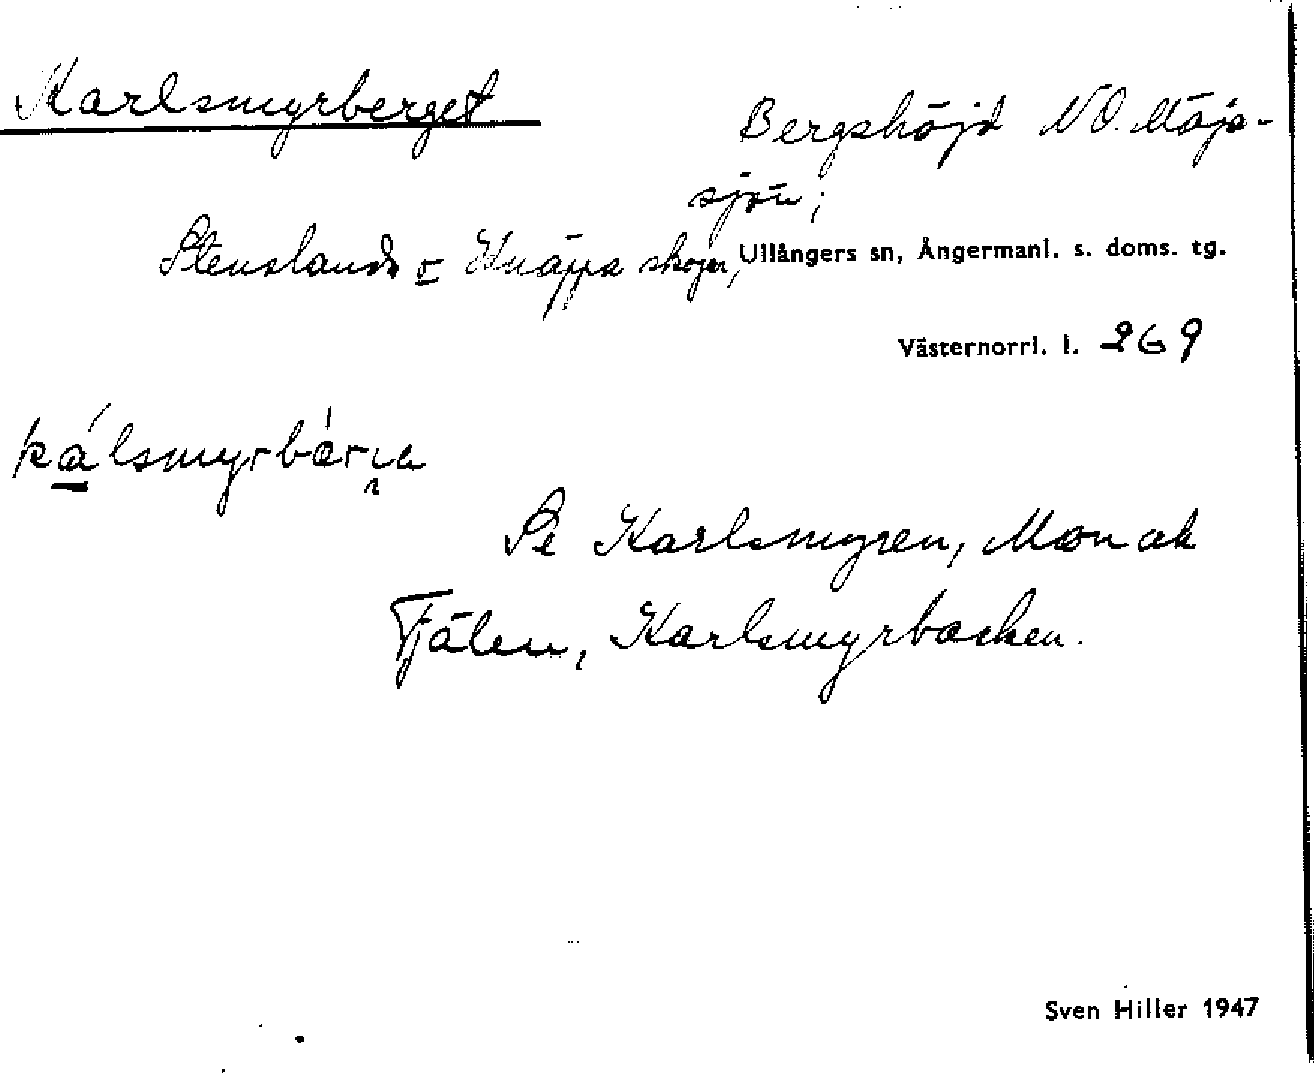 Karlsmyrberget
Bergshöjd NO. Möjs-
sjön;
Stenslands o Knäppa skogar, Ullångers sn, Ångermanl. s. doms. tg.
Västernorrl. l. 269
Se Karlsmyren, Mon ak
Fjälen, Karlsmyrbacken.
Sven Hiller 1947